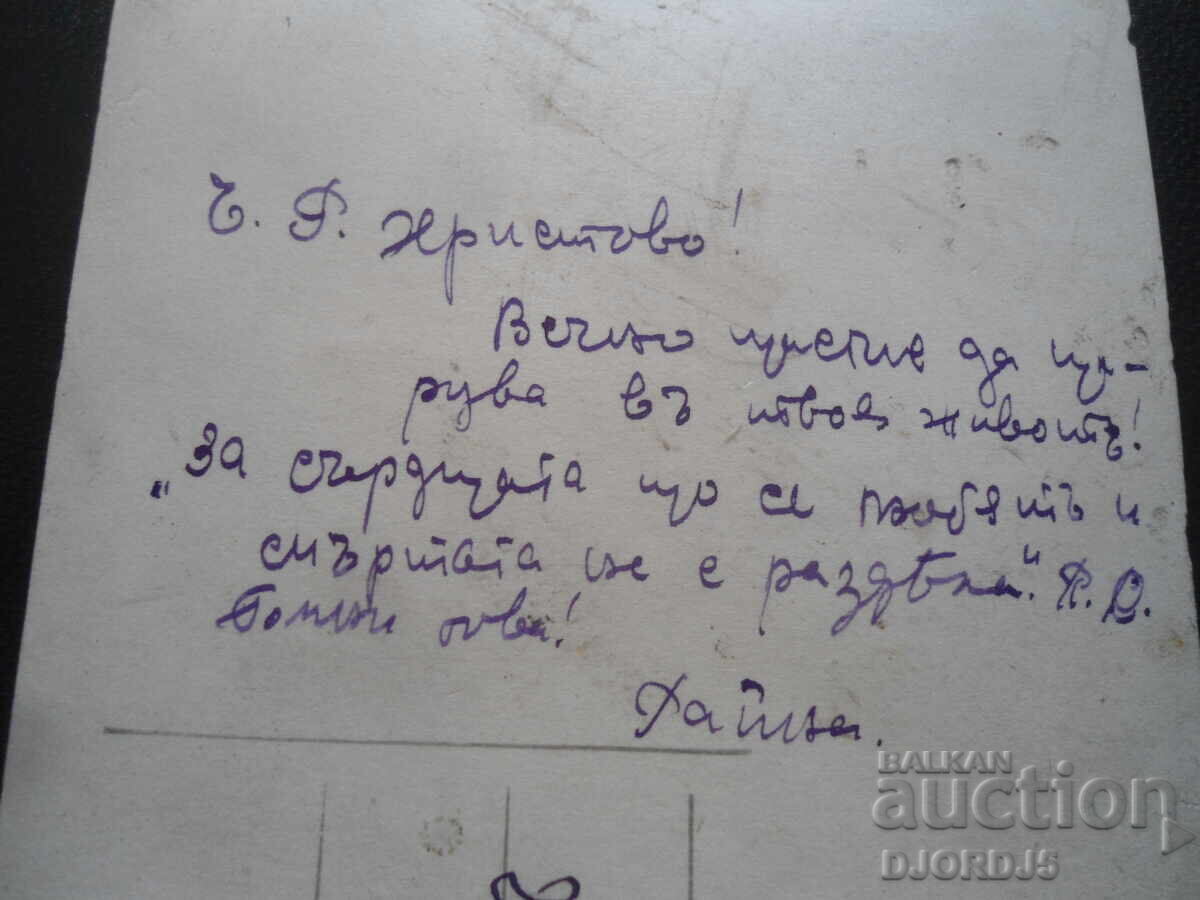 Ч. Г. Христово!
Вечно щастие да ца-
рува въ твоя животъ!
"За сърдцата що се любятъ и
смъртта не е раздѣла".
Помни това!
Райна.
BALKAN
auction
DJORDJ5